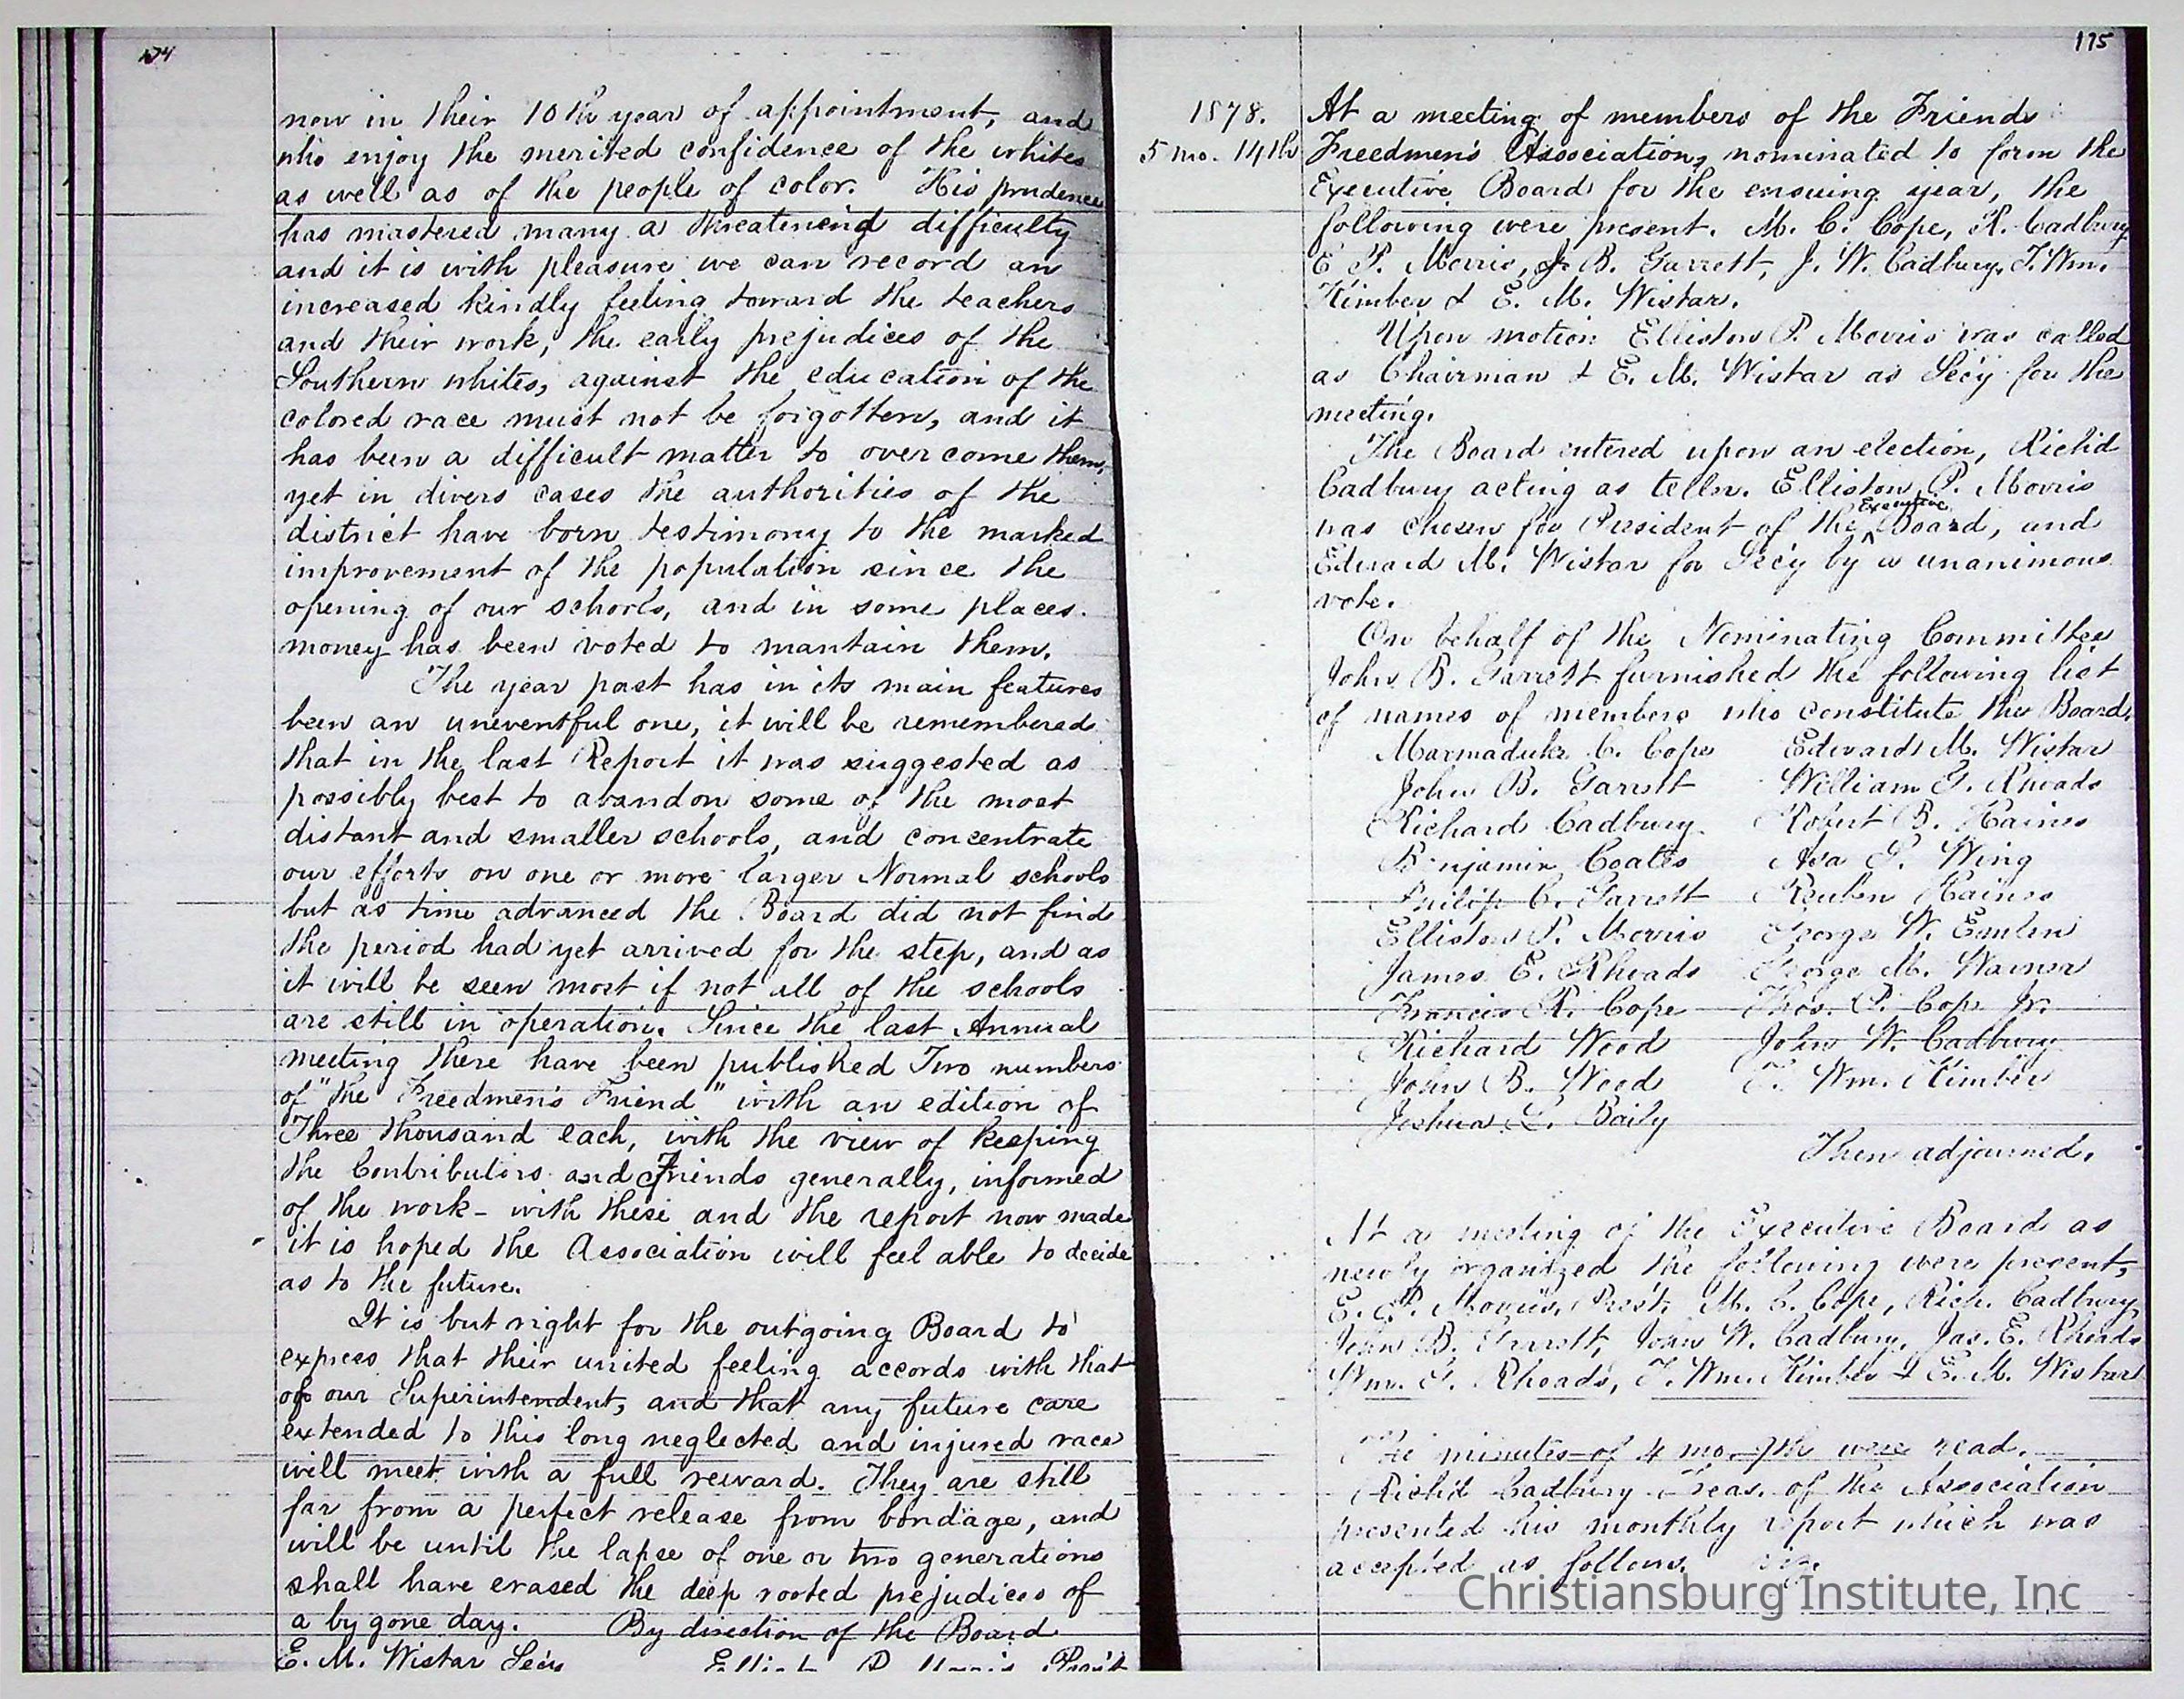 174
now in their 10th year of appointment, and
who enjoy the merited confidence of the whites
as well as of the people of color. His prudence
has mastered many a threatening difficulty
and it is with pleasure we can record an
increased kindly feeling toward the teachers
and their work, the early prejudices of the
Southern whites, against the education of the
colored race must not be forgotten, and it
has been a difficult matter to over come them,
yet in divers cases the authorities of the
district have born testimony to the marked
improvement of the population since the
opening of our schools, and in some places
money has been voted to mantain them.
The year past has in its main features
been an uneventful one, it will be remembered
that in the last Report it was suggested as
possibly best to abandon some of the most
distant and smaller schools, and concentrate
our efforts on one or more larger Normal schools
but as time advanced the Board did not find
the period had yet arrived for the step, and as
it will be seen most if not all of the schools
are still in operation. Since the last Annual
meeting there have been published Two numbers
of "the Freedmen's Friend" with an edition of
Three thousand each, with the view of keeping
the Contributors and Friends generally, informed
of the work - with these and the report now made
it is hoped the Association will feel able to decide
as to the future.
It is but right for the outgoing Board to
express that their united feeling accords with that
of our Superintendent, and that any future care
extended to this long neglected and injured race
will meet with a full reward. They are still
far from a perfect release from bondage, and
will be until the lapse of one or two generations
shall have erased the deep rooted prejudices of
a by gone day. By direction of the Board
E. M. Wistar Sec'y Elliston P. Morris Pres't
175
1878. At a meeting of members of the Friends
5 mo. 14th Freedmen's Association, nominated to form the
Executive Board for the ensuing year, the
following were present. M. C. Cope, R. Cadbury
E P. Morris, J. B. Garrett, J. W. Cadbury, T. Wm.
Kimber & E. M. Wistar.
Upon motion Elliston P. Morris was called
as Chairman & E. M. Wistar as Sec'y for the
meeting.
The Board entered upon an election, Rich'd
Cadbury acting as teller. Elliston P. Morris
was chosen for President of the Executive Board, and
Edward M. Wistar for Sec'y by a unanimous
vote.
On behalf of the Nominating Committee
John B. Garrett furnished the following list
of names of members who constitute the Board,
Marmaduke C. Cope Edward M. Wistar
John B. Garrett William G. Rhoads
Richard Cadbury Robert B. Haines
Benjamin Coates Asa S. Wing
Philip C. Garrett Reuben Haines
Elliston P. Morris George W. Emlen
James E. Rhoads George M. Warner
Francis R. Cope Thos. P. Cope Jr.
Richard Wood John W. Cadbury
John B. Wood T. Wm. Kimber
Joshua L. Baily
Then adjourned.
At a meeting of the Executive Board as
newly organized the following were present,
E. P. Morris, Pres't, M. C. Cope, Rich. Cadbury
John B. Garrett, John W. Cadbury, Jas. E. Rhoads
Wm. G. Rhoads, T. Wm. Kimber & E. M. Wistar
The minutes of 4 mo. 9th were read.
Rich'd Cadbury Treas. of the Association
presented his monthly report which was
accepted as follows. viz.
Christiansburg Institute, Inc